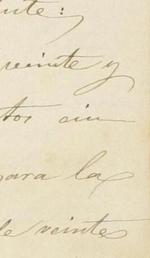 ente:
veinte y
tos cin
para la
de veintes